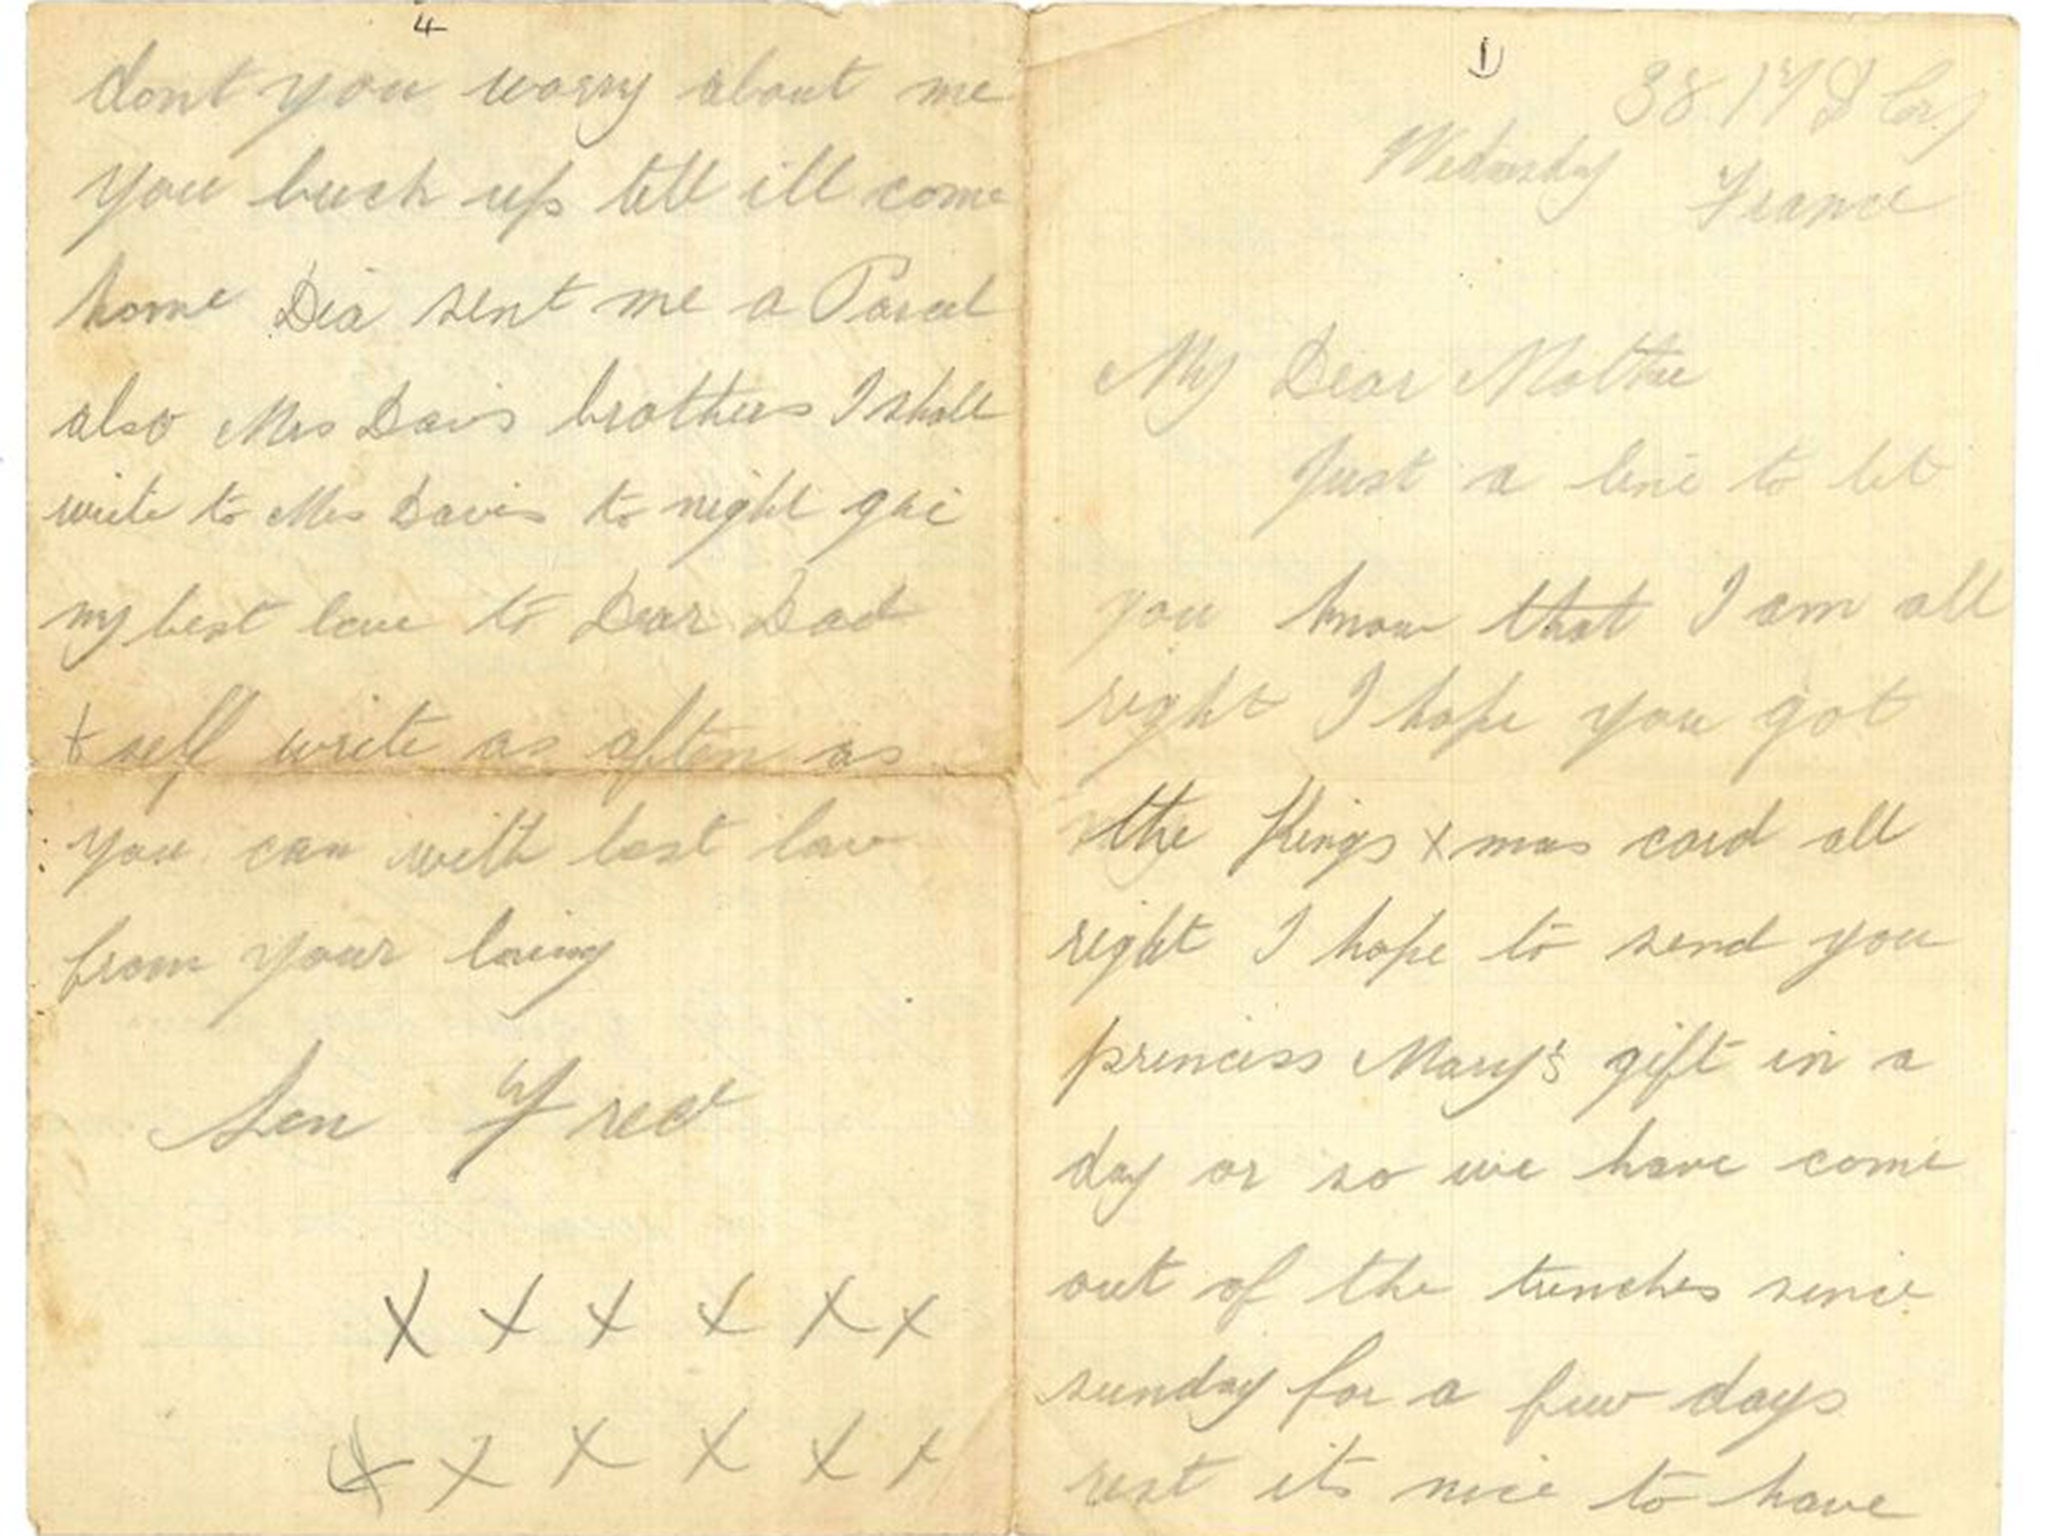 1
3817 D Coy
Wednesday France
My Dear Mother
Just a line to let
you know that I am all
right I hope you got
the Kings xmas card all
right I hope to send you
princess Mary's gift in a
day or so we have come
out of the trenches since
sunday for a few days
rest its nice to have
4
dont you worry about me
you buck up till ill come
home Dia sent me a Parcel
also Mrs Davis brothers I shall
write to Mrs Davis to night give
my best love to Dear Dad
+ self write as often as
you can with best love
from your loving
Son Fred
x x x x x x
x x x x x x